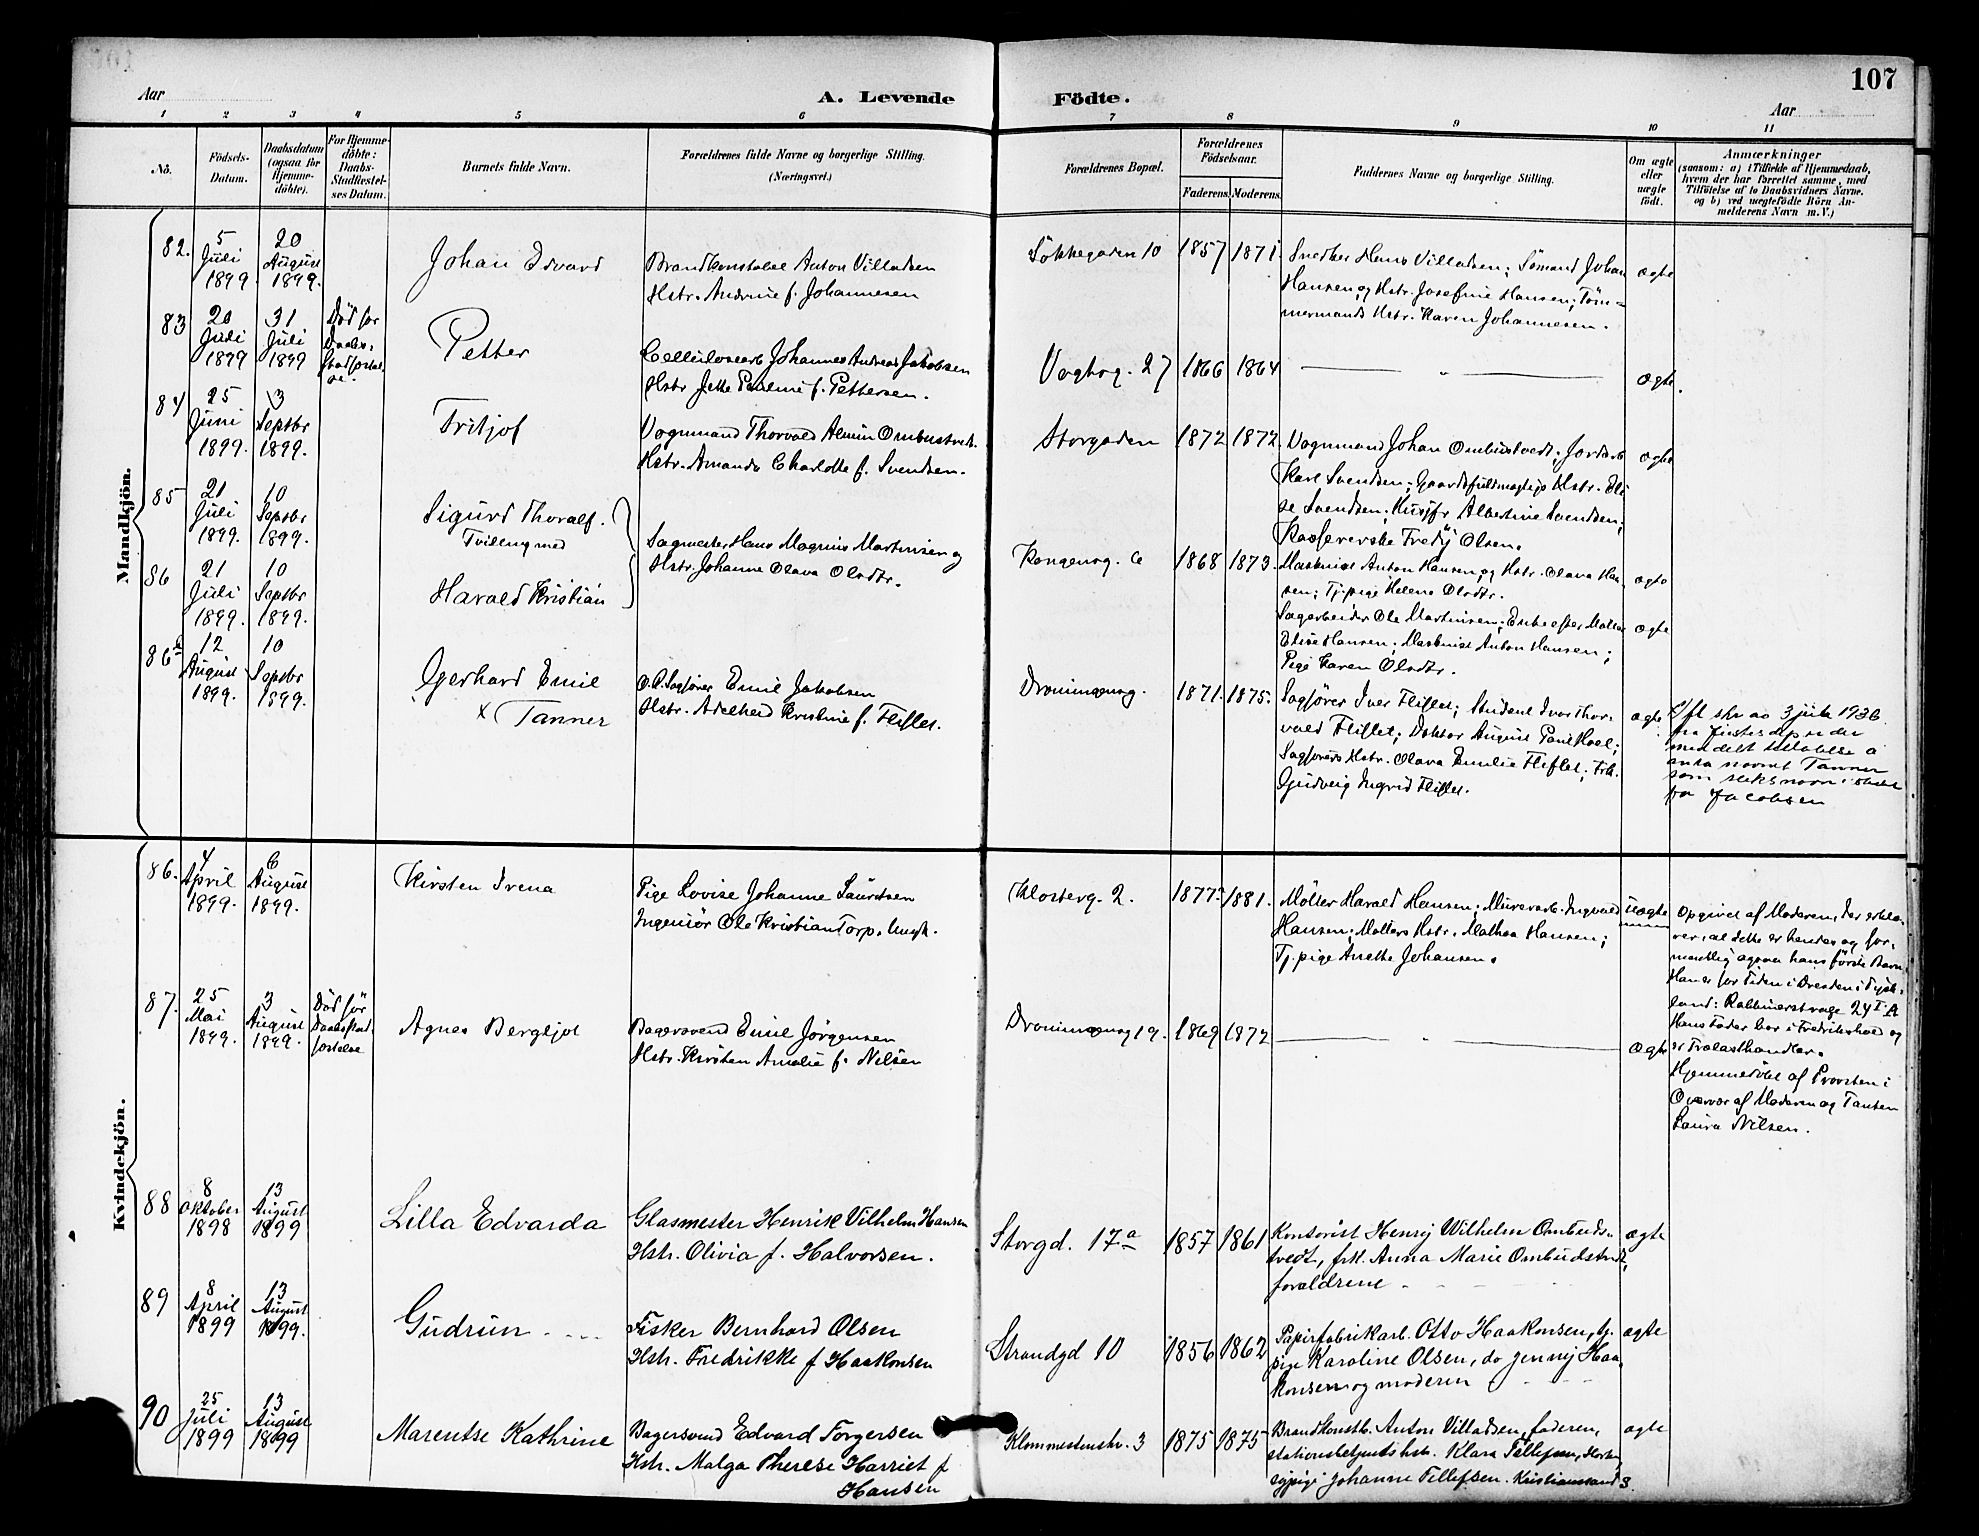 107
Aar
A. Levende
Födte.
Aar
1 2 3 4 5 6 7 8 9 10 11
No.
Födsels-
Datum.
Daabsdatum
(ogsaa for
Hjemme-
döbte).
For Hjemme-
döbte:
Daabs-
Stadfæstel-
ses Datum.
Barnets fulde Navn.
Forældrenes fulde Navne og borgerlige Stilling.
(Næringsvei.)
Forældrenes Bopæl.
Forældrenes
Födselsaar.
Faderens. Moderens.
Faddernes Navne og borgerlige Stilling.
Om ægte
eller
uægte
födt.
Anmærkninger
(saasom: a) i Tilfælde af Hjemmedaab,
hvem der har forrettet samme, med
Tilföielse af to Daabsvidners Navne.
og b) ved uægtefödte Börn An-
melderens Navn m. V.)
Mandkjön.
82.
5
Juli
1899.
20
August
1899.
Johan Edvard
Brandkonstabel Anton Villadsen
Hstr. Andrine f. Johannesen
Sökkegaden 10
1857 1871.
Snedker Hans Villadsen; Sömand Johan
Hansen og Hstr. Josefine Hansen; Töm-
mermands Hstr. Karen Johannesen.
ægte
83
20
Juli
1899
31
Juli
1899
Död før
Daabs-
Stadfæstel-
se.
Petter
Cellulosearb. Johannes Andreas Jakobsen
Hstr. Jette Pauline f. Pettersen.
Vogtog. 27
1866 1864
ægte.
84
25
Juni
1899.
3
Septbr
1899.
Fritjof
Vognmand Thorvald Almin Ombustvedt
Hstr. Amanda Charlotte f. Svendsen.
Storgaden
1872 1872.
Vognmand Johan Ombustvedt; Jordarb.
Karl Svendsen; Gaardsfuldmægtigs Hstr. Eli-
se Svendsen; Husjfr. Albertine Svendsen;
Kassererske Fredÿ Olsen.
ægte
85
21
Juli
1899.
10
Septbr
1899.
Sigurd Thoralf.
Tvilling med
Sagmester Hans Magnus Martinsen og
Hstr. Johanne Olava Olsdtr.
Kongensg. 6
1868 1873.
Maskinist Anton Hansen og Hstr. Olava Han-
sen; Tj.pige Helene Olsdtr.
ægte
86
21
Juli
1899.
10
Septbr
1899.
Harald Kristian
Sagarbeider Ole Martinsen; Enke efter
Elise Hansen; Maskinist Anton Hansen;
Pige Karen Olsdtr.
ægte
86b
12
August
1899.
10
Septbr
1899.
Gerhard Emil
x Tanner
O.R.Sagfører Emil Jakobsen
Hstr. Adelheid Kristine f. Fliflet.
Dronningensg.
1871. 1875.
Sagfører Iver Fliflet; Student Ivar Thor-
vald Fliflet; Doktor August Paul Hoel;
Sagførers Hstr. Olava Emilie Fliflet; Frk.
Gudveig Ingrid Fliflet.
ægte
Ift skr av 3 juli 1936
fra Justisdep er der
meddelt tillatelse å
anta navnet Tanner
som slektsnavn i stedet
for Jacobsen
Kvindekjön.
86.
4
April
1899.
6
August
1899.
Kirsten Irena
Pige Lovise Johanne Lauritsen
Ingeniør Ole Kristian Torp, Ungk.
Klosterg. 2.
1877. 1881.
Møller Harald Hansen; Murerarb. Ingvald
Hansen; Møllers Hstr. Mathea Hansen;
Tj.pige Anette Johansen.
uægte
Opgivet af Moderen, der erklæ-
rer, at dette er hendes og for-
mentlig ogsaa hans første Barn.
Han er for Tiden i Dresden i Tysk-
land: 24 I A
Hans Fader bor i Fredrikshald og
er Trælasthandler.
Hjemmedøbt af Provsten i
Overvær af Moderen og Tanten
Laura Nilsen.
87.
25
Mai
1899.
3
August
1899.
Död før
Daabsstad-
fæstelse
Agnes Bergljot
Bagersvend Emil Jörgensen
Hstr. Kirsten Amalie f. Nilsen
Dronningensg 19.
1869 1872
ægte
88
8
Oktober
1898
13
August
1899
Lilla Edvarda
Glasmester Henrik Vilhelm Hansen
Hstr. Olivia f. Halvorsen.
Storgd. 17a
1857 1861
Kontorist Henrij Wilhelm Ombuds-
tvedt, frk. Anna Marie Ombudstvedt,
forældrene
ægte
89
8
April
1899
13
August
1899.
Gudrun
Fisker Bernhard Olsen
Hstr. Fredrikke f Haakonsen
Strandgd 10
1856 1862
Papirfabrikarb. Otto Haakonsen, tj.
pige Karoline Olsen, do Jennij Haa-
konsen og moderen
ægte
90
25
Juli
1899
13
August
1899
Marentse Kathrine
Bagersvend Edvard Torgersen
Hstr. Malga Therese Harriet f
Hansen
Klommestenstr. 3
1875 1875
Brandkonstb. Anton Villadsen, faderen,
stationsbetjents hstr. Klara Tellefsen,
sypige Johanne Tellefsen. Kristianssand S.
ægte